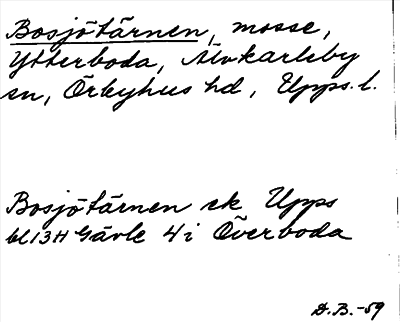 Bosjötärnen, mosse,
Ytterboda, Älvkarleby
sn, Örbyhus hd, Upps. l.
Bosjötärnen ek Upps
bl 13H Gävle 4i Överboda
D.B.-59